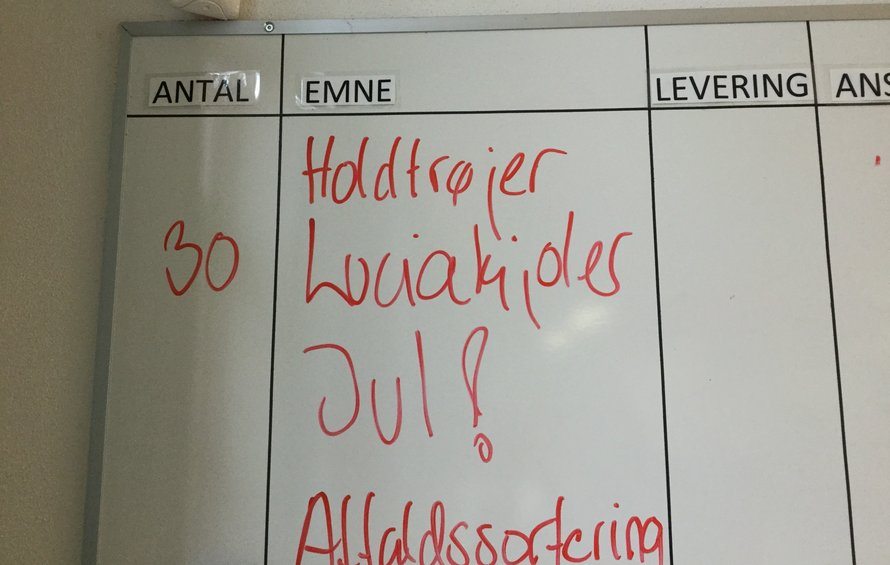 ANTAL EMNE LEVERING ANS
Holdtrøjer
30 Luciakjoler
Jul!
Affaldssortering